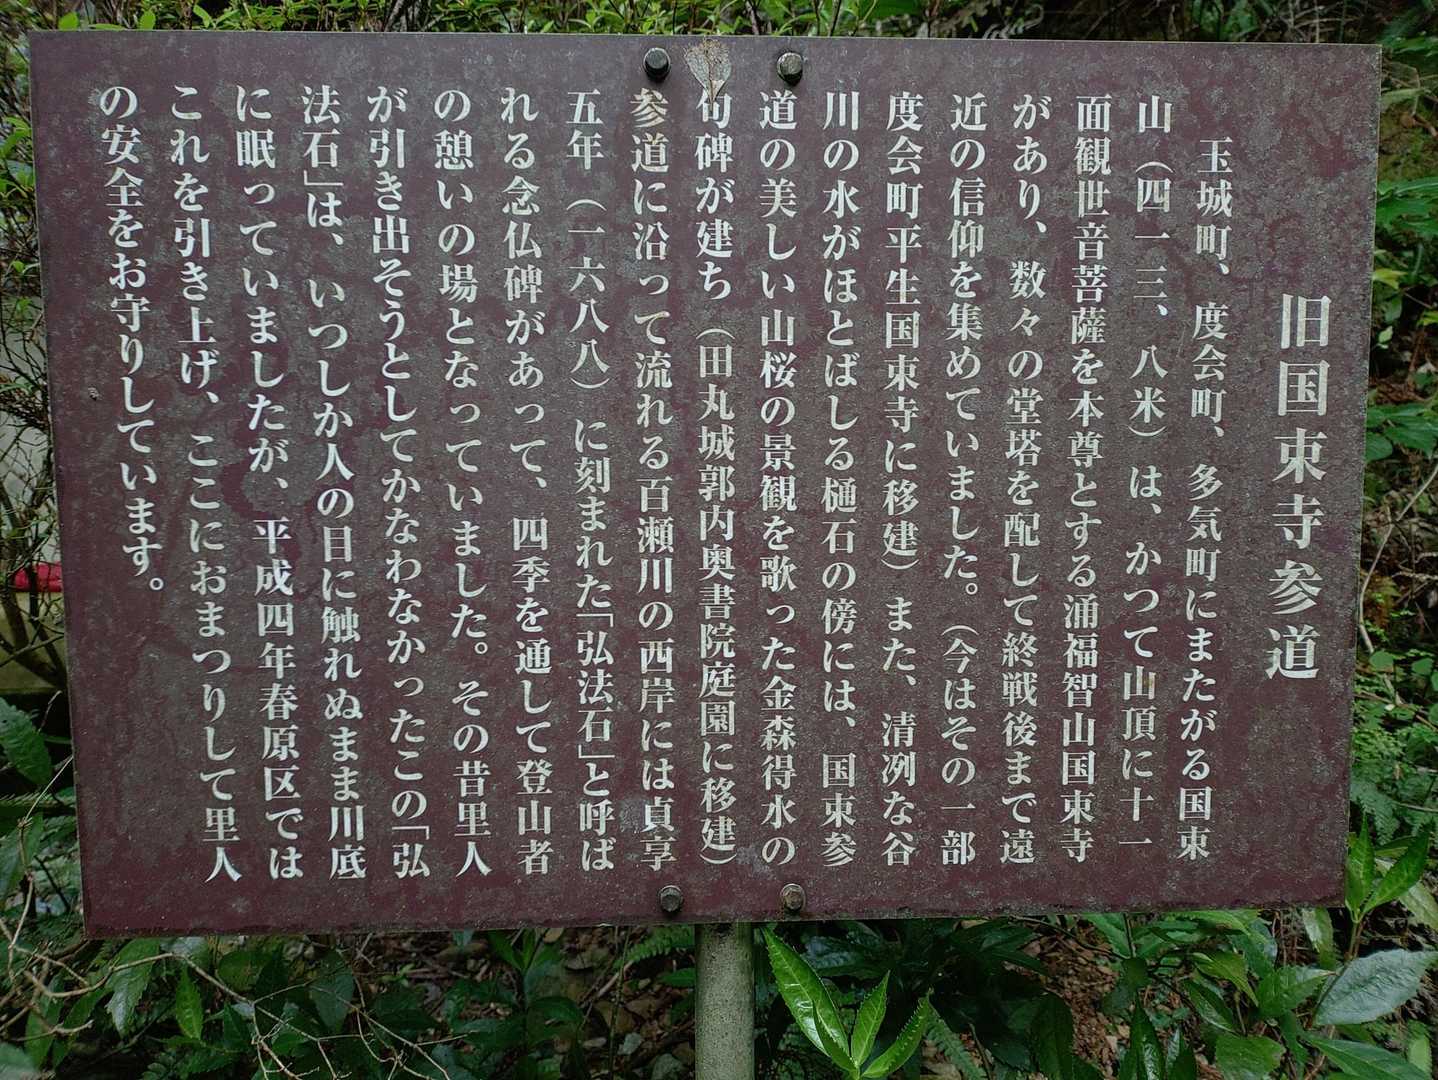 旧国束寺参道
玉城町、度会町、多気町にまたがる国束
山（四一三、八米）は、かつて山頂に十一
面観世音菩薩を本尊とする涌福智山国束寺
があり、数々の堂塔を配して終戦後まで遠
近の信仰を集めていました。（今はその一部
度会町平生国束寺に移建）また、清冽な谷
川の水がほとばしる樋石の傍には、国束参
道の美しい山桜の景観を歌った金森得水の
句碑が建ち（田丸城郭内奥書院庭園に移建）
参道に沿って流れる百瀬川の西岸には貞享
五年（一六八八）に刻まれた「弘法石」と呼ば
れる念仏碑があって、四季を通して登山者
の憩いの場となっていました。その昔里人
が引き出そうとしてかなわなかったこの「弘
法石」は、いつしか人の目に触れぬまま川底
に眠っていましたが、平成四年春原区では
これを引き上げ、ここにおまつりして里人
の安全をお守りしています。